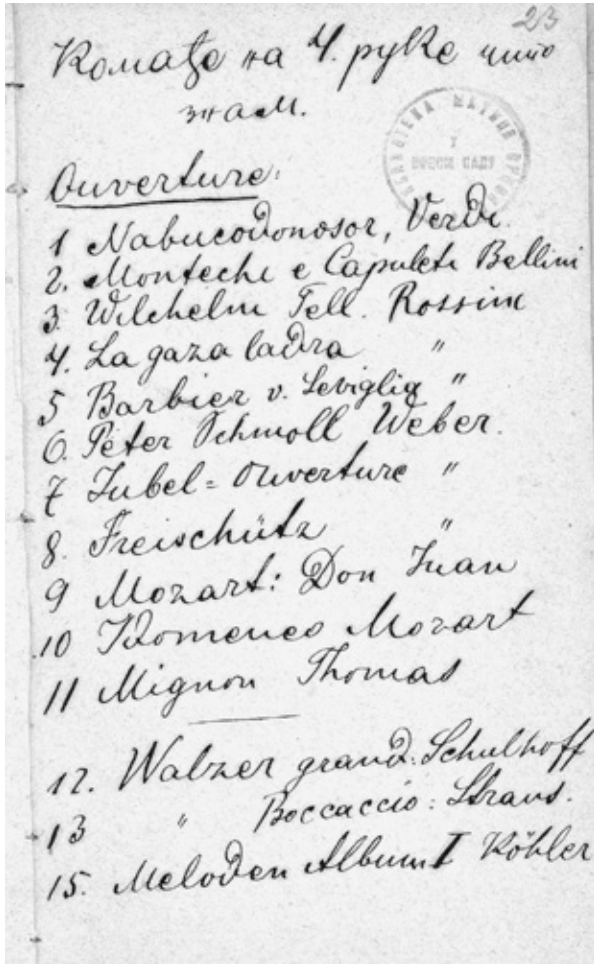 23
Комађе на 4. руке што
знам.
БИБЛИОТЕКА МАТИЦЕ СРПСКЕ
У
НОВОМ САДУ
Ouverture:
1 Nabucodonosor, Verdi.
2. Montechi e Capuleti Bellini
3. Wilchelm Tell. Rossini
4. La gaza ladra "
5 Barbier v. Seviglia "
6. Peter Schmoll Weber.
7 Jubel=Ouverture "
8. Freischütz "
9 Mozart: Don Juan
10 Idomeneo Mozart
11 Mignon Thomas
12. Walzer grand: Schulhoff
13 " Boccaccio: Straus.
15. Meloden Album I Köhler